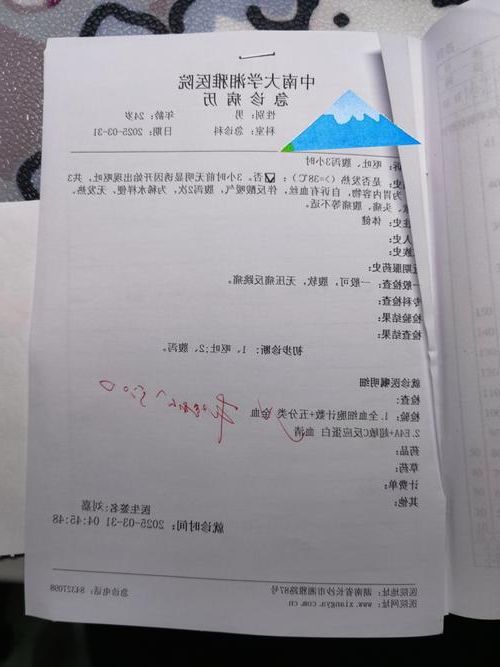 中南大学湘雅医院
急诊病历
性别：男 年龄：24岁
科室：急诊科 日期：2025-03-31
诉：呕吐、腹泻3小时
史：是否发热（>=38℃）：☑否。3小时前无明显诱因开始出现呕吐，共3
为胃内容物，自诉有血丝，伴反酸嗳气，腹泻2次，为稀水样便，无发热、
、头痛、腹痛等不适。
往史：体健
人史：
族史：
近期服药史：
一般检查：一般可，腹软，无压痛反跳痛。
专科检查：
检验结果：
检查结果：
初步诊断：1、呕吐；2、腹泻。
就诊医嘱明细
检查：
检验：1.全血细胞计数+五分类 全血
2.E4A+超敏C反应蛋白 血清
药品：
草药：
计费单：
其他：
医生签名：刘嘉
就诊时间：2025-03-31 04:45:48
医院地址：湖南省长沙市湘雅路87号 急诊电话：84327098
医院网址：www.xiangya.com.cn